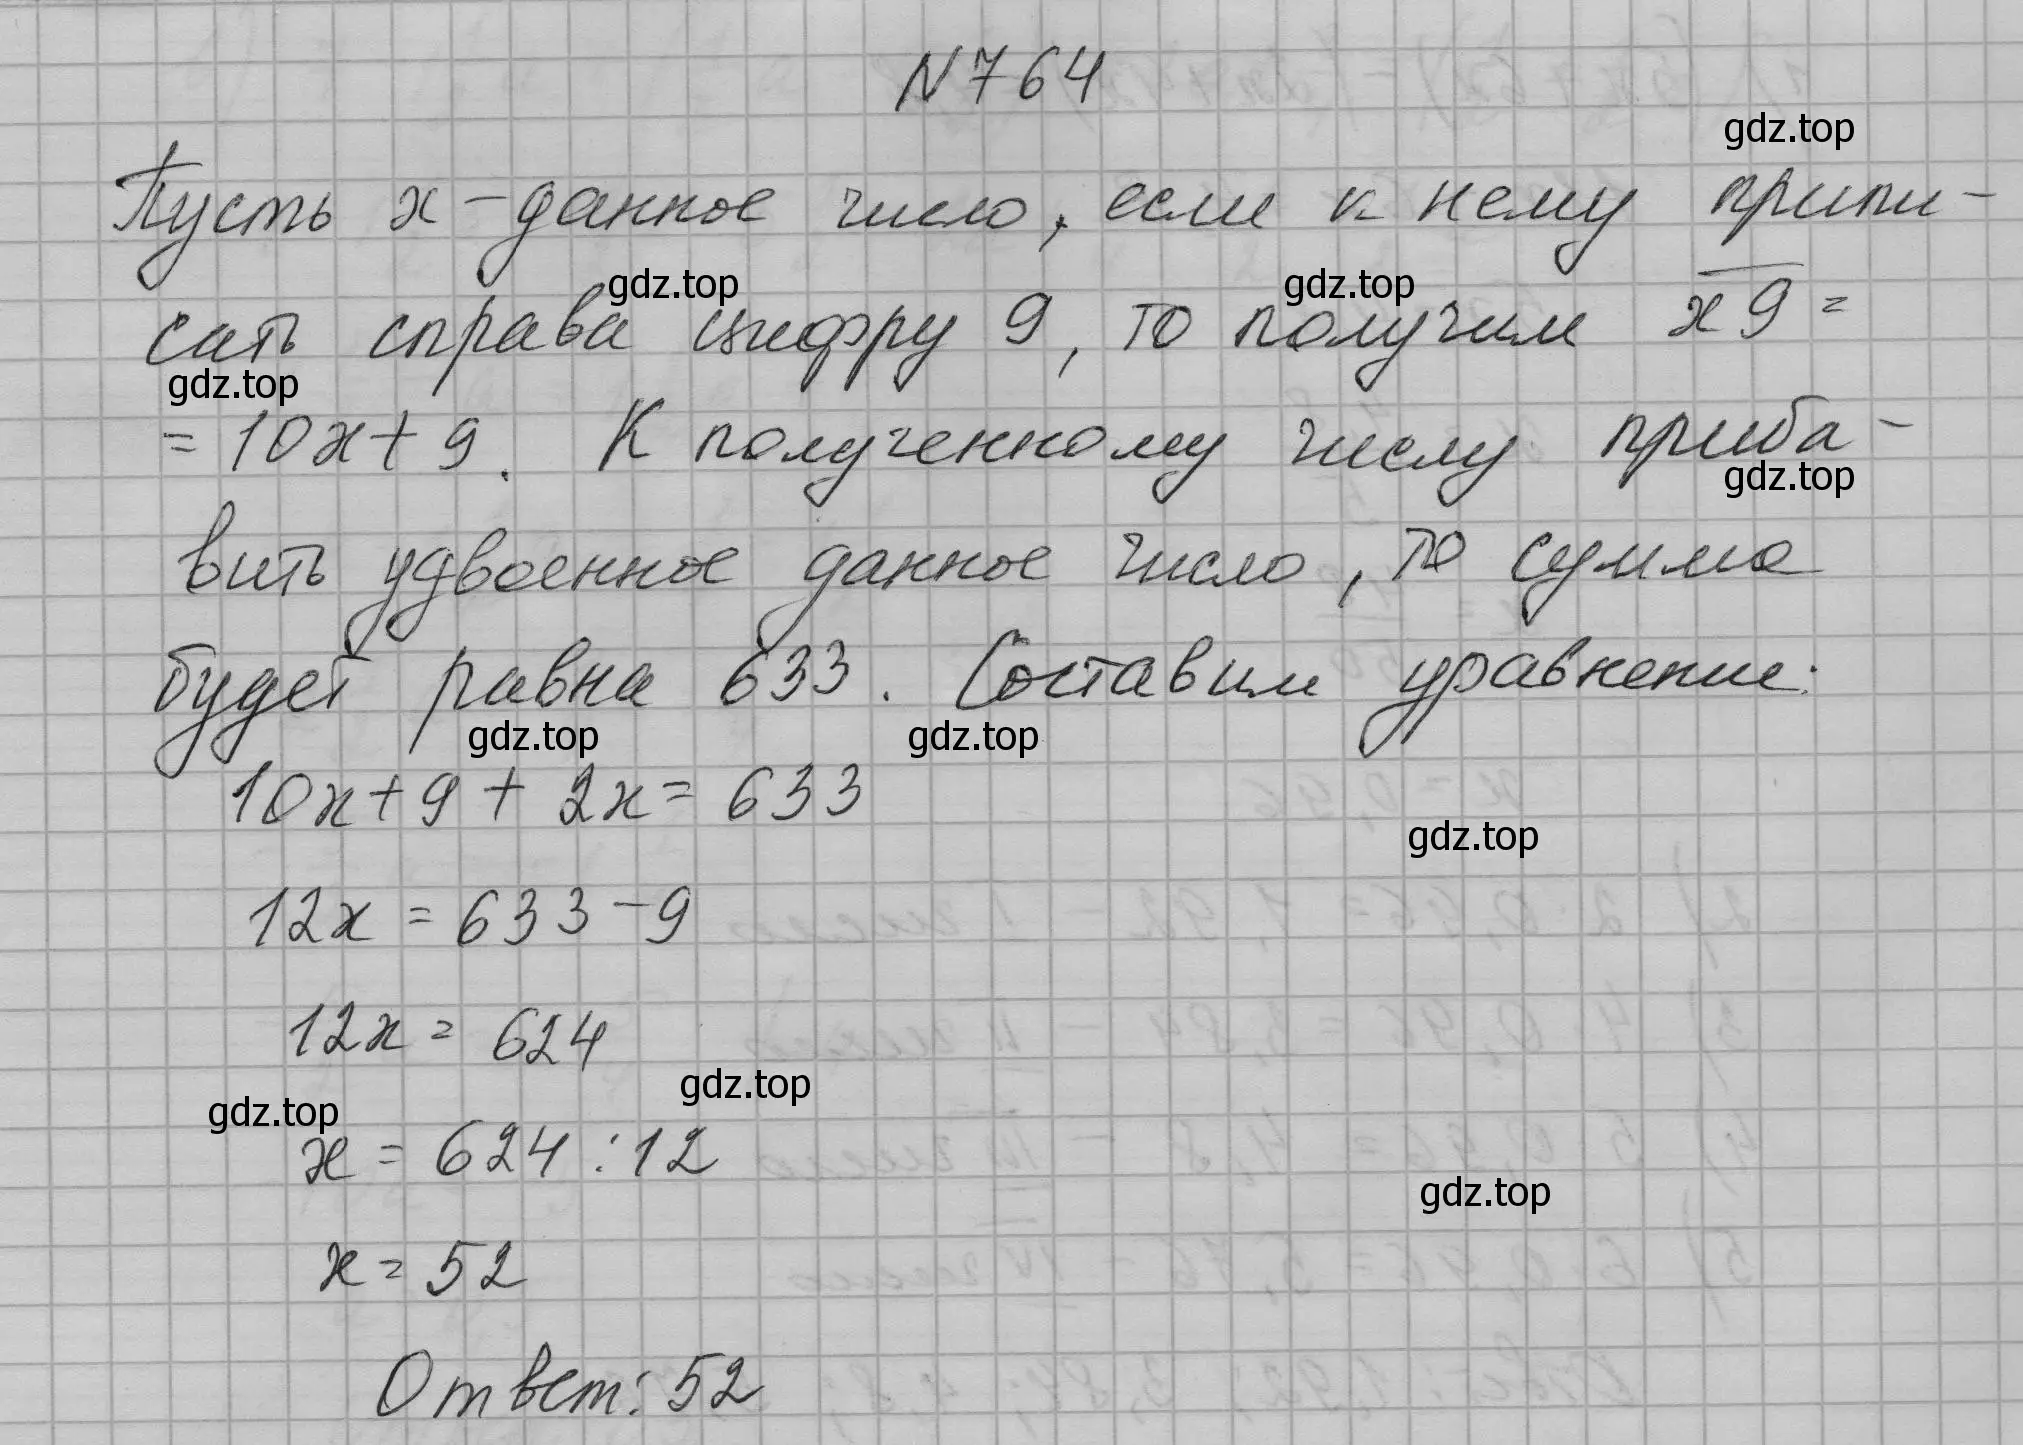 N764
gdz.top
Пусть x - данное число, если к нему припи-
gdz.top gdz.top
сать справа цифру 9, то получим x9 =
gdz.top
= 10x + 9. К полученному числу приба-
gdz.top
вить удвоенное данное число, то сумма
будет равна 633. Составим уравнение:
gdz.top gdz.top
10x + 9 + 2x = 633
gdz.top
12x = 633 - 9
12x = 624
gdz.top
gdz.top
x = 624 : 12
gdz.top
x = 52
Ответ: 52